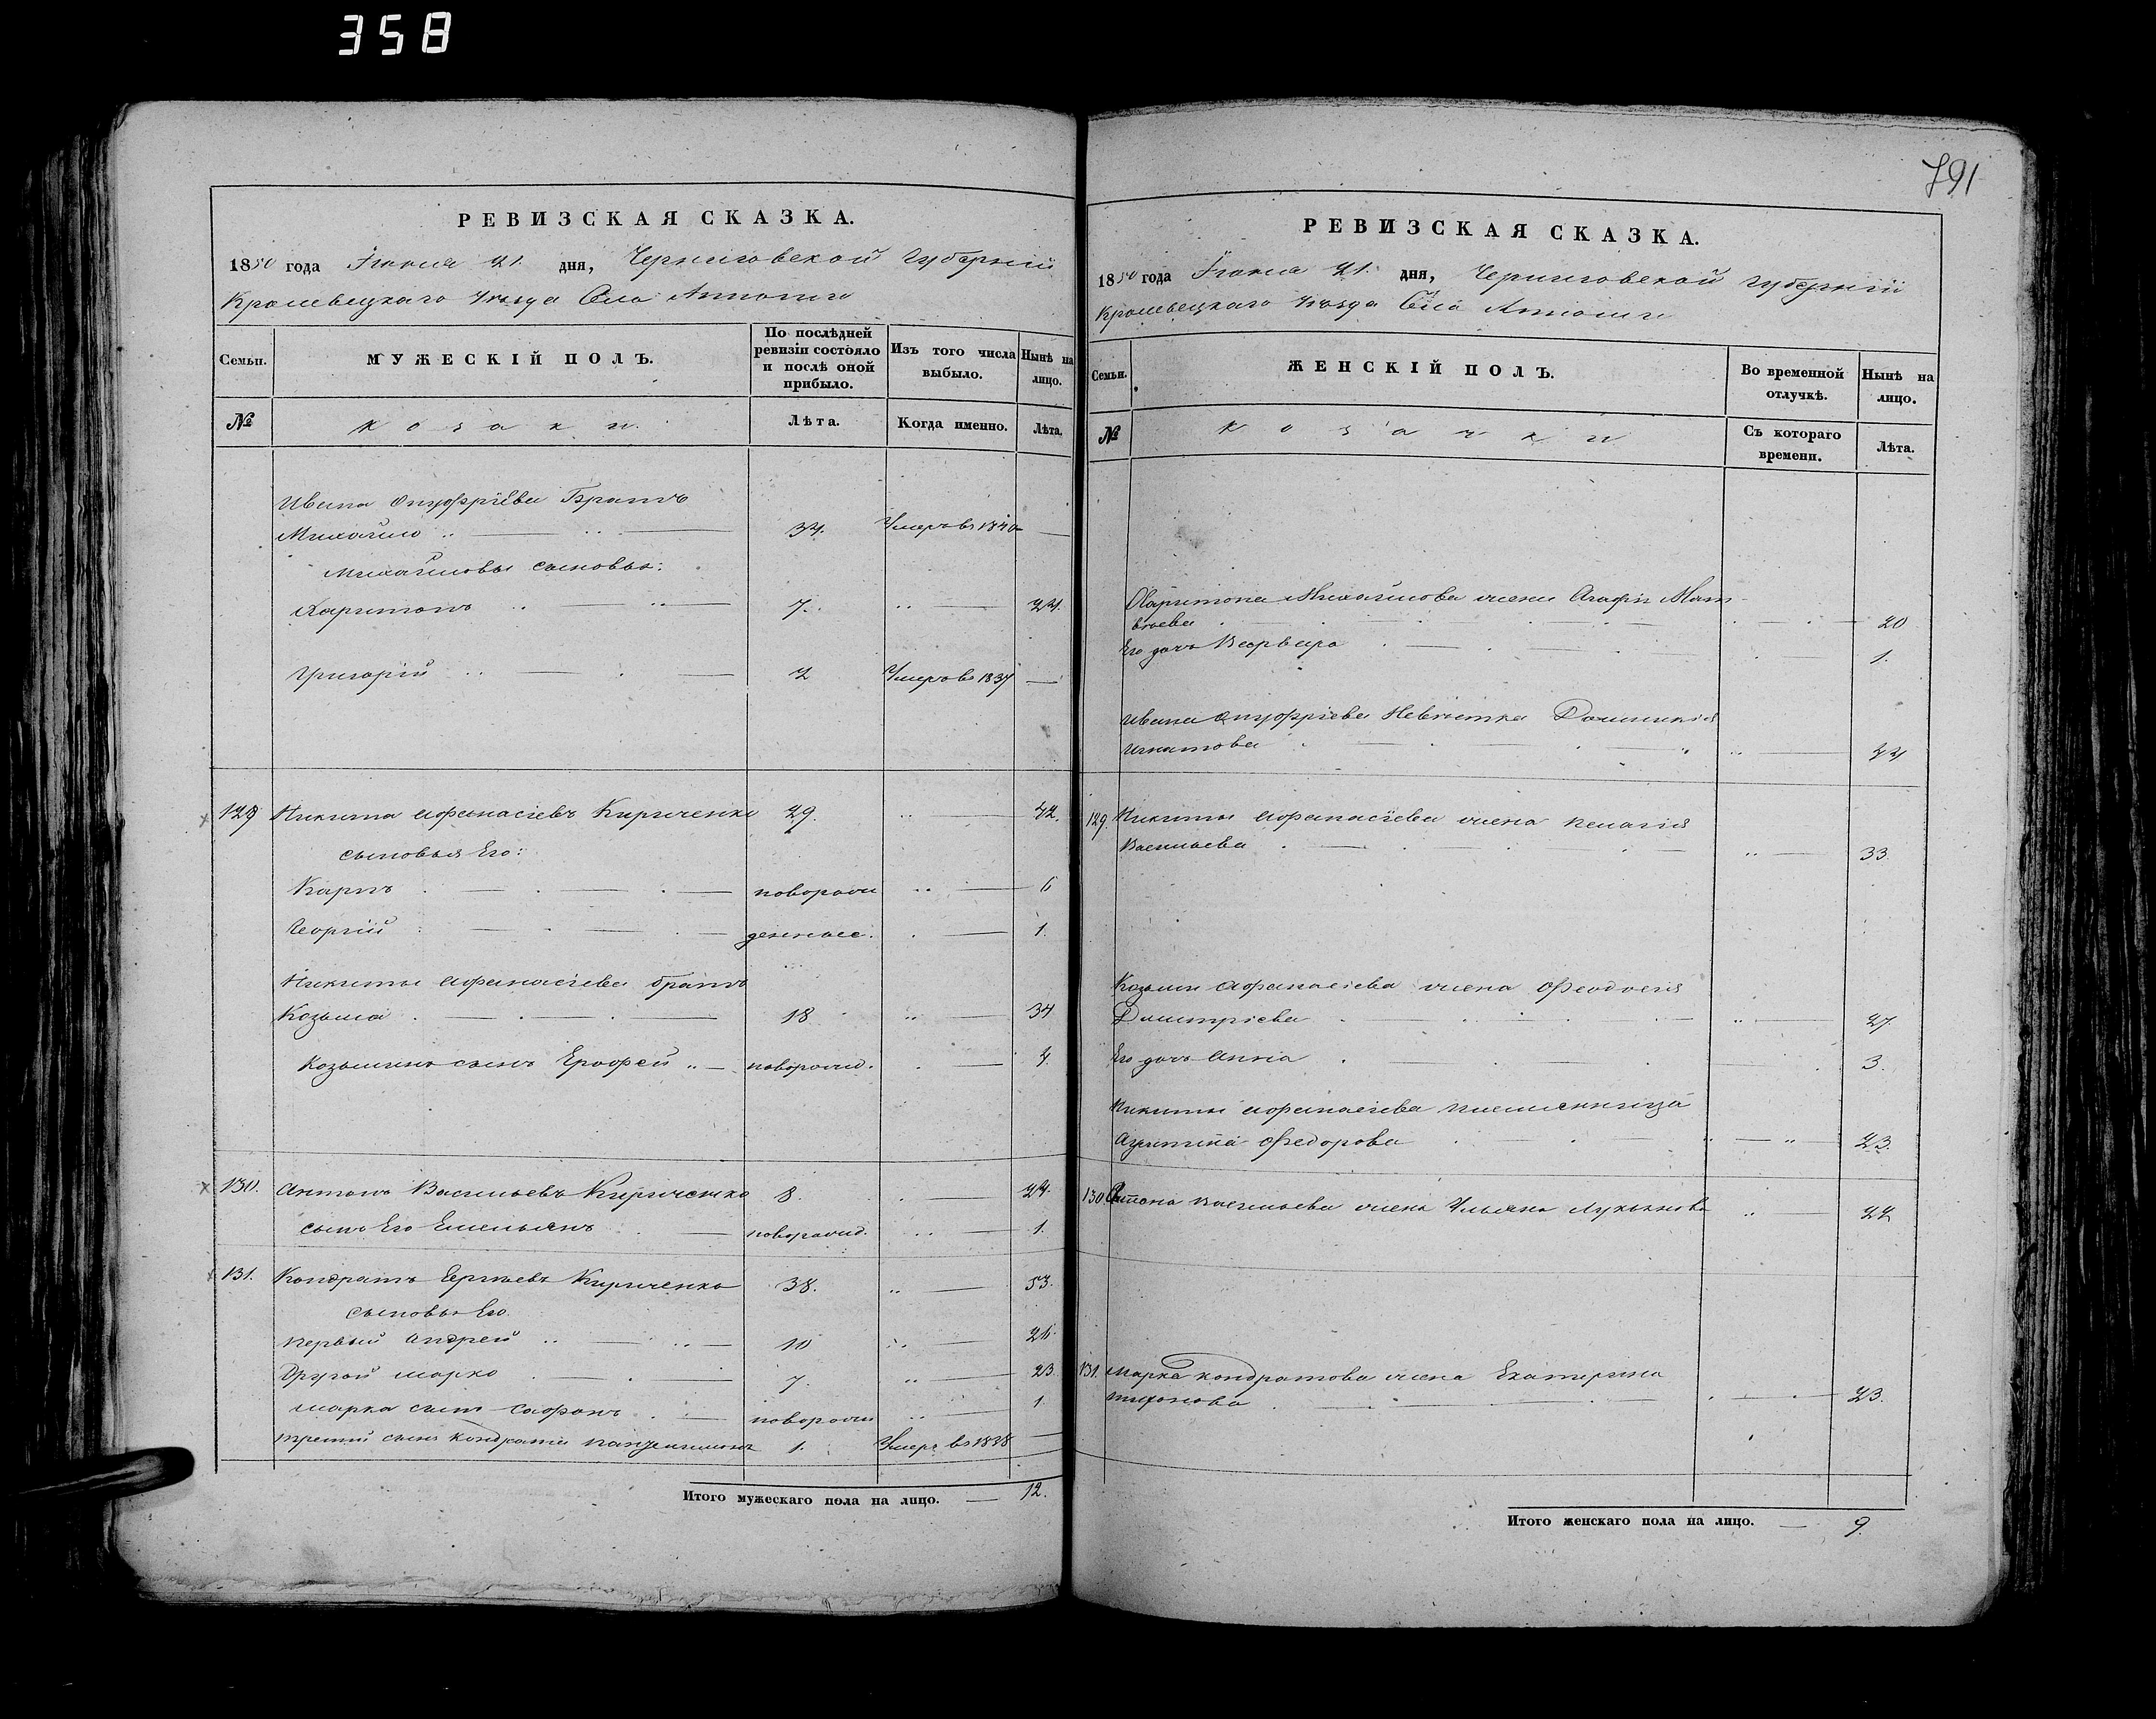 358
791
РЕВИЗСКАЯ СКАЗКА.
1850 года Іюня 21. дня, Черниговской Губерніи
Кролевецкаго уѣзда Села
Семьи. МУЖЕСКІЙ ПОЛЪ. По послѣдней ревизіи состояло и послѣ оной прибыло. Изъ того числа выбыло. Нынѣ на лицо.
№ Козаки. Лѣта. Когда именно. Лѣта.
Ивана Онуфріева Братъ
Михайло 34. Умеръ въ 1840
Михайловы сыновья:
Харитонъ 7. 22.
Григорій 2 Умеръ въ 1837
129 Никита Афанасіевъ Кириченко 29. 44.
сыновья Его:
Карпъ новорож 6
Георгій денные. 1.
Никиты Афанасіева братъ
Козьма 18 34
Козьминъ сынъ Ерофей новорожд.
130. Антонъ Васильевъ Кириченко 8.
сынъ Его Емельянъ новорожд. 1.
131. Кондратъ Сергѣевъ Кириченко 38. 53.
сыновья Его
первый Андрей 10
Другой Марко 7. 23
Марка сынъ Сафонъ новорож 1
третій сынъ Кондрата 1. Умеръ въ 1838
Итого мужескаго пола на лицо. 12.
РЕВИЗСКАЯ СКАЗКА.
1850 года Іюня 21. дня, Черниговской Губерніи
Кролевецкаго уѣзда Села
Семьи. ЖЕНСКІЙ ПОЛЪ. Во временной отлучкѣ. Нынѣ на лицо.
№ Козачки Съ котораго времени. Лѣта.
Харитона Михайлова жена Агафія Мат-
вѣева 20
Его дочь Варвара 1.
Ивана Онуфріева Невѣстка Домникія
Игнатова
129. Никиты Афанасіева жена Пелагія
Васильева 33.
Козьмы Афанасіева жена Феодосія
Димитріева 27.
Его дочь Анна 3.
Никиты Афанасіева племянница
Федорова 23.
130 Антона Васильева жена Ульяна Лукьянова 22
131. Марка Кондратова жена Екатерина
23.
Итого женскаго пола на лицо. 9.